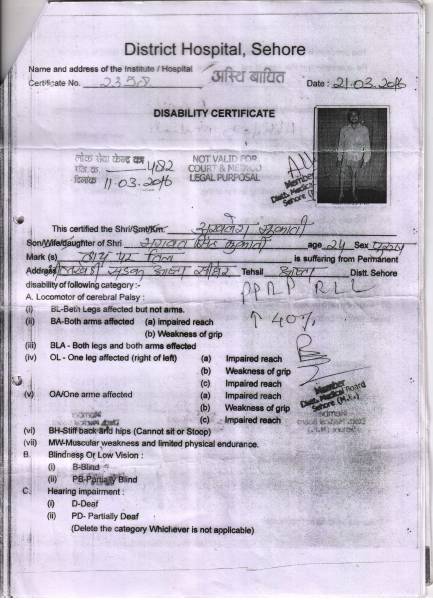 District Hospital, Sehore
Name and address of the Institute / Hospital
Certificate No. 2358 अस्थि बाधित Date : 21.03.2016
DISABILITY CERTIFICATE
लोक सेवा केन्द्र का
रजि. क्र. 482
दिनांक 11-03-2016
NOT VALID FOR
COURT & MEDICO
LEGAL PURPOSAL
Member
Distt. Medical
Sehore
This certified the Shri/Smt/Km.
Son/Wife/daughter of Shri age 24 Sex पुरुष
Mark (s) is suffering from Permanent
Address Tehsil आष्टा Distt. Sehore
disability of following category :- PPRP RLL
A. Locomotor of cerebral Palsy :
(i) BL-Beth Legs affected but not arms. ↑ 40%
(ii) BA-Both arms affected (a) impaired reach
(b) Weakness of grip
(iii) BLA - Both legs and both arms effected
(iv) OL - One leg affected (right of left) (a) Impaired reach
(b) Weakness of grip
(c) Impaired reach
Member
Distt. Medical Board
Sehore (M.P.)
(v) OA/One arme affected (a) Impaired reach
(b) Weakness of grip
(c) Impaired reach
(vi) BH-Stiff back and hips (Cannot sit or Stoop)
(vii) MW-Muscular weakness and limited physical endurance.
B. Blindness Or Low Vision :
(i) B-Blind
(ii) PB-Partially Blind
C. Hearing impairment :
(i) D-Deaf
(ii) PD- Partially Deaf
(Delete the category Whichever is not applicable)